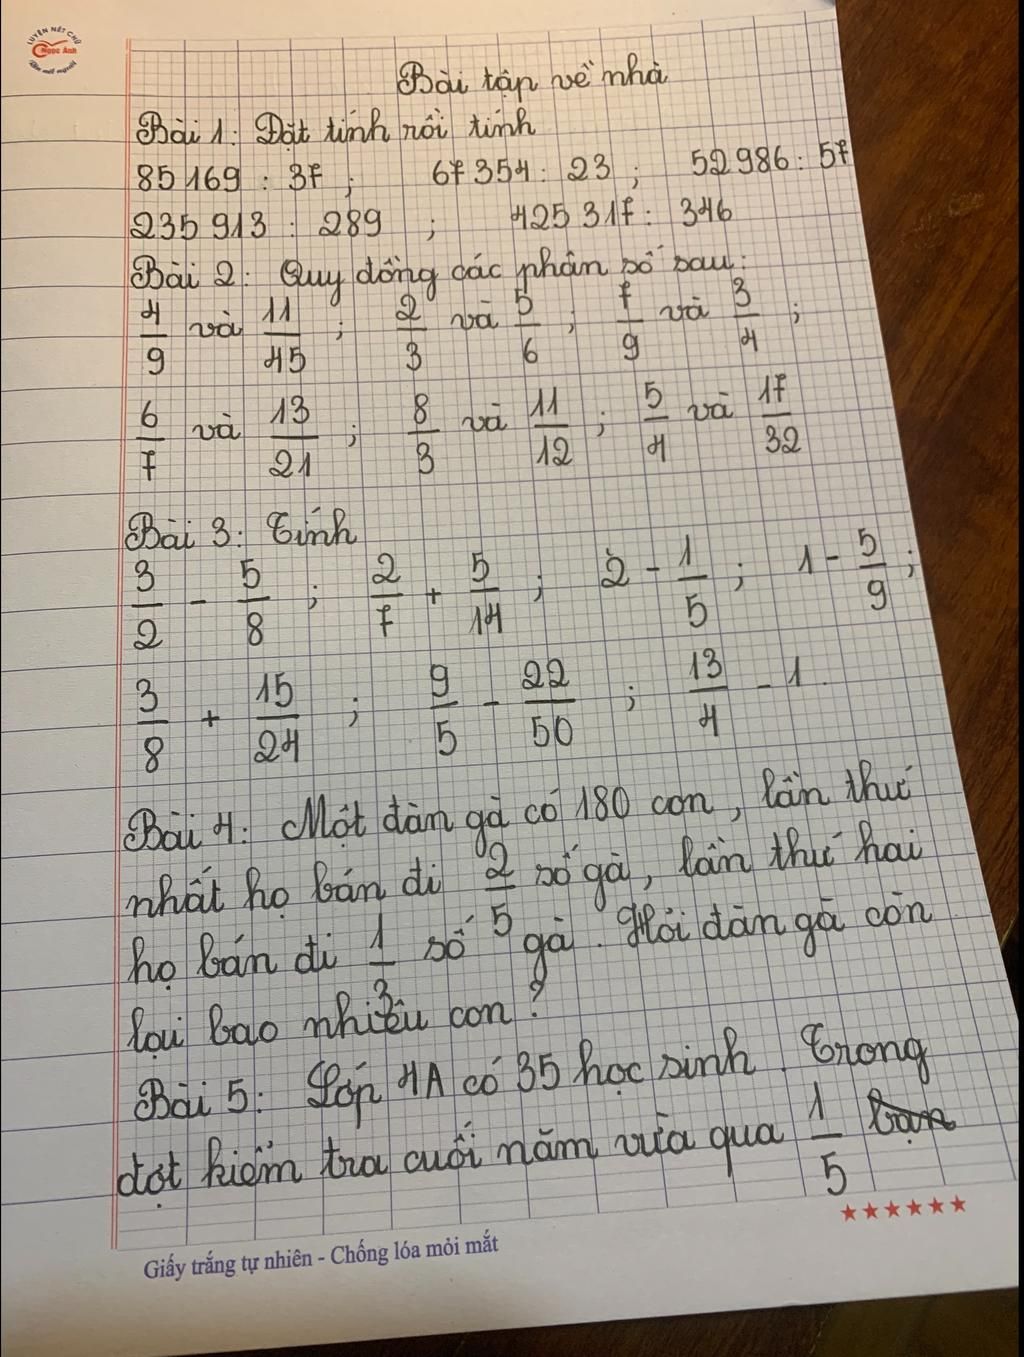 LUYỆN NÉT CHỮ
Ngọc Ánh
Bài tập về nhà
Bài 1: Đặt tính rồi tính
85169 : 37 ; 67354 : 23 ; 52986 : 57
235913 : 289 ; 425317 : 346
Bài 2: Quy đồng các phân số sau:
4/9 và 11/45 ; 2/3 và 5/6 ; 7/9 và 3/4 ;
6/7 và 13/21 ; 8/3 và 11/12 ; 5/4 và 17/32
Bài 3: Tính
3/2 - 5/8 ; 2/7 + 5/14 ; 2 - 1/5 ; 1 - 5/9 ;
3/8 + 15/24 ; 9/5 - 22/50 ; 13/4 - 1.
Bài 4: Một đàn gà có 180 con, lần thứ
nhất họ bán đi 2/5 số gà, lần thứ hai
họ bán đi 1/3 số gà. Hỏi đàn gà còn
lại bao nhiêu con?
Bài 5: Lớp 4A có 35 học sinh. Trong
đợt kiểm tra cuối năm vừa qua 1/5
★★★★★★
Giấy trắng tự nhiên - Chống lóa mỏi mắt